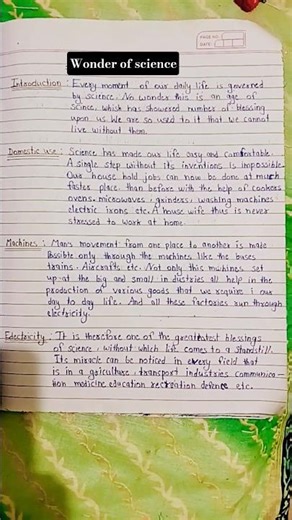 PAGE NO:
DATE:
Wonder of science
Introduction : Every moment of our daily life is governed
by science. No wonder this is an age of
scince, which has showered number of blessing
upon us. We are so used to it that we cannot
live without them.
Domestic use : Science has made our life easy and comfeatable.
A single step without its inventions is impossible.
Our house hold jobs can now be done at much
faster place. than before with the help of cookers
ovens, microwaves, grinders, washing machines
electric irons etc. A house wife thus is never
stressed to work at home.
Machines : Mans movement from one place to another is made
possible only through the machines like the buses
trains, Aircrafts etc. Not only this machines set
up at the big and small in dustries all help in the
production of various goods that we require i our
day to day life. And all these factories run through
electricity.
Edectricity : It is therefore one of the greatestest blessings
of science, without which life comes to a standstill.
Its miracle can be noticed in every field that
is in a griculture, transport industries communica-
tion medicine education recreation defence etc.